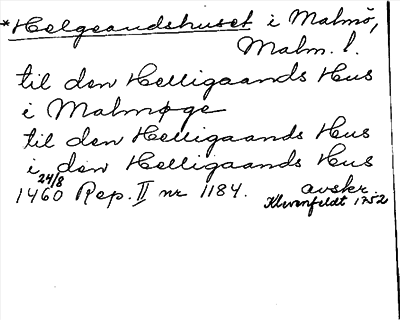 *Helgeandshuset i Malmö,
Malm. l.
til den Helligaands Hus
i Malmøge
til den Helligaands Hus
i den Helligaands Hus
24/8
1460 Rep. II nr 1184. avskr.
Klevenfeldt 1752